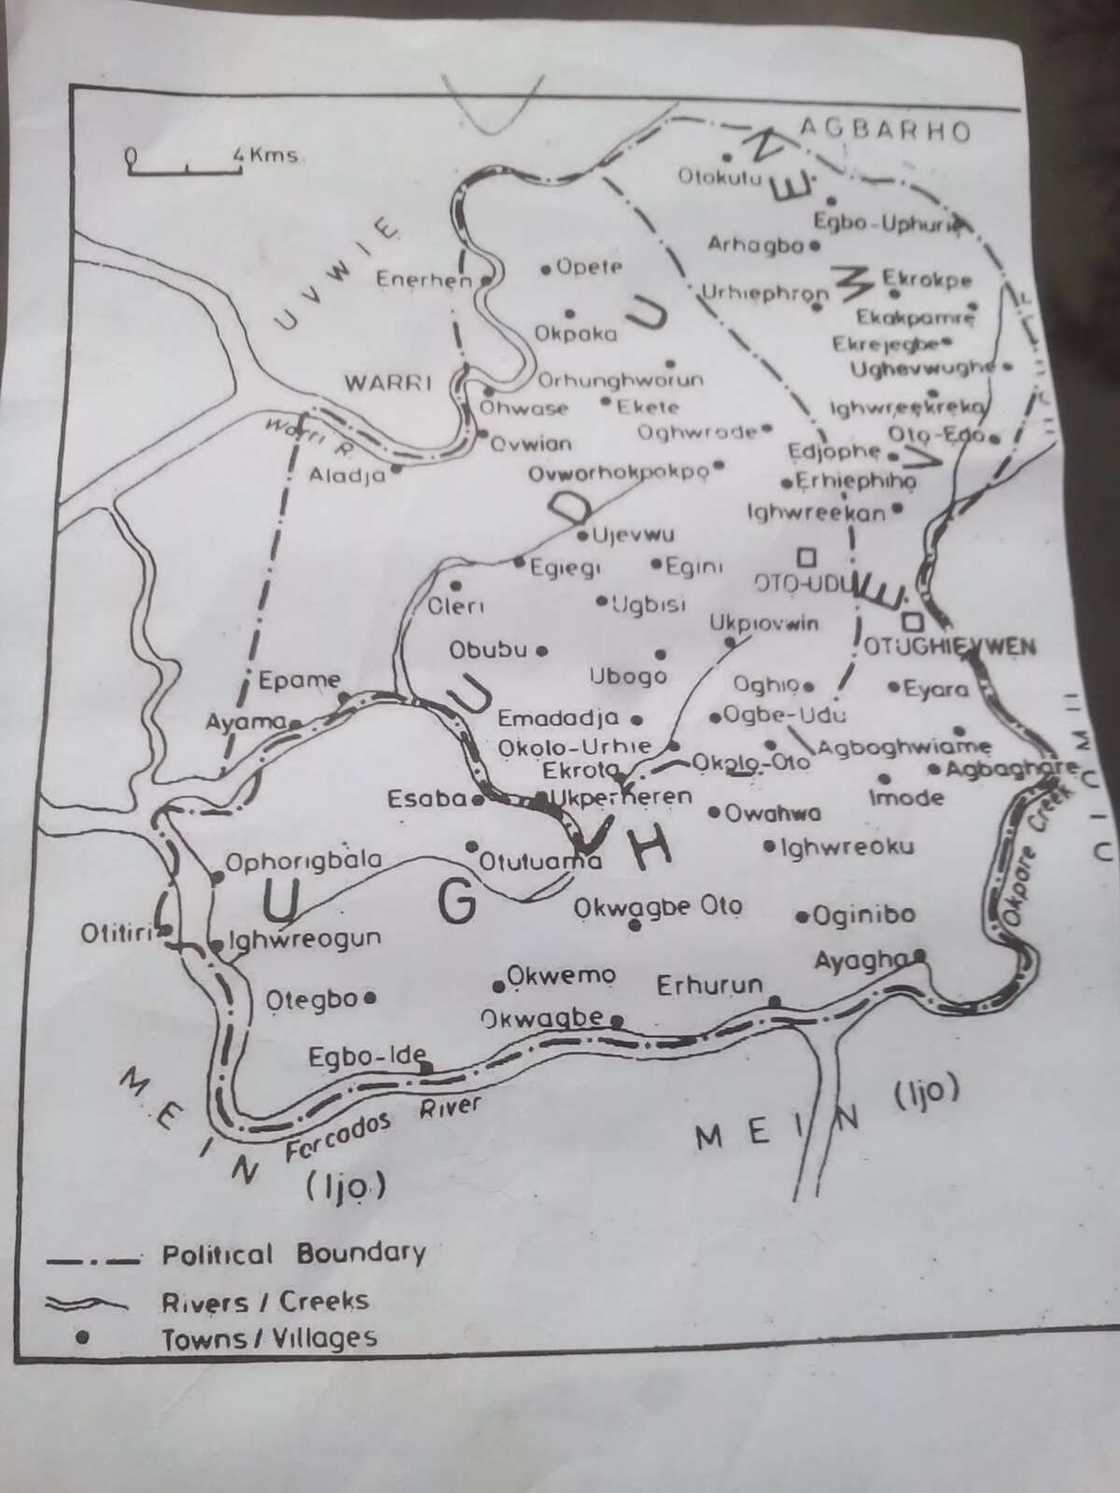 AGBARHO
0 4 Kms
UVWIE
Otokutu
Egbo-Uphurie
Arhagba
Enerhen
Opete
Urhiephron
Ekrokpe
Ekakpamre
Okpaka
Ekrejegbe
Ughevwughe
WARRI
Orhunghworun
Ohwase
Ekete
Ighwreekreka
Warri R.
Ovwian
Oghwrode
Oto-Edo
Edjophe
Aladja
Ovworhokpokpo
Erhiephiho
Ighwreekan
Ujevwu
Egiegi
Egini
OTO-UDU
Oleri
Ugbisi
Ukpiovwin
OTUGHIEVWEN
Obubu
Ubogo
Epame
Oghio
Eyara
Ayama
Emadadja
Ogbe-Udu
Okolo-Urhie
Agboghwiame
Ekrota
Okolo-Oto
Agbaghare
Esaba
Ukperheren
Imode
Owahwa
Ophorigbala
Otutuama
Ighwreoku
UDU
UGHIEVWEN
Okpare Creek
Otitiri
Okwagbe Oto
Oginibo
Ighwreogun
Ayagha
Otegbo
Okwemo
Erhurun
Okwagbe
Egbo-Ide
Forcados River
MEIN
(Ijo)
MEIN (Ijo)
Political Boundary
Rivers / Creeks
Towns / Villages